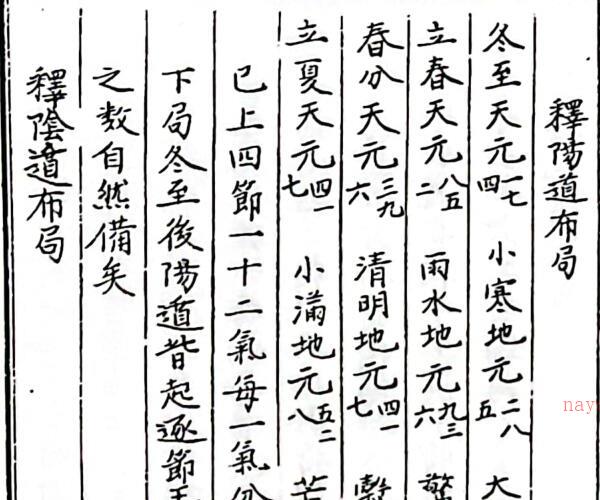 釋陽遁布局
冬至天元一七四 小寒地元二八五 大
立春天元八五二 雨水地元九三六 驚
春分天元三九六 清明地元四一七 穀
立夏天元四一七 小滿地元五二八 芒
已上四節一十二氣每一氣分
下局冬至後陽遁皆起逐節
之数自然備矣
釋陰遁布局
nay